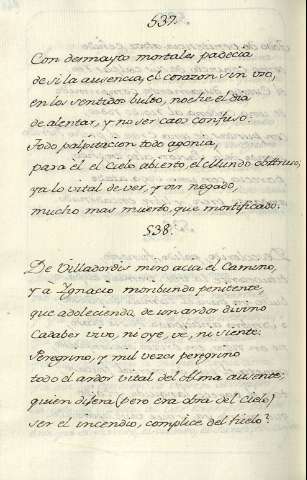 537.
Con desmayos mortales padecia
de si la ausencia, el corazon sin uso,
en los sentidos bulto, noche el dia
de alentar, y no ser caos confuso.
Todo palpitacion todo agonia,
para èl el Cielo abierto, el Mundo obstruso,
ya lo vital de ver, y oir negado,
mucho mas muerto, que mortificado.
538.
De Villadordis miro acia el Camino,
y à Ignacio moribundo penitente,
que adoleciendo, de un ardor divino
Cadaber vivo, ni oye, ve, ni siente:
Peregrino, y mil veces peregrino
todo el ardor vital del Alma ausente;
quien dijera (pero era obra del Cielo)
ser el incendio, complice del hielo?